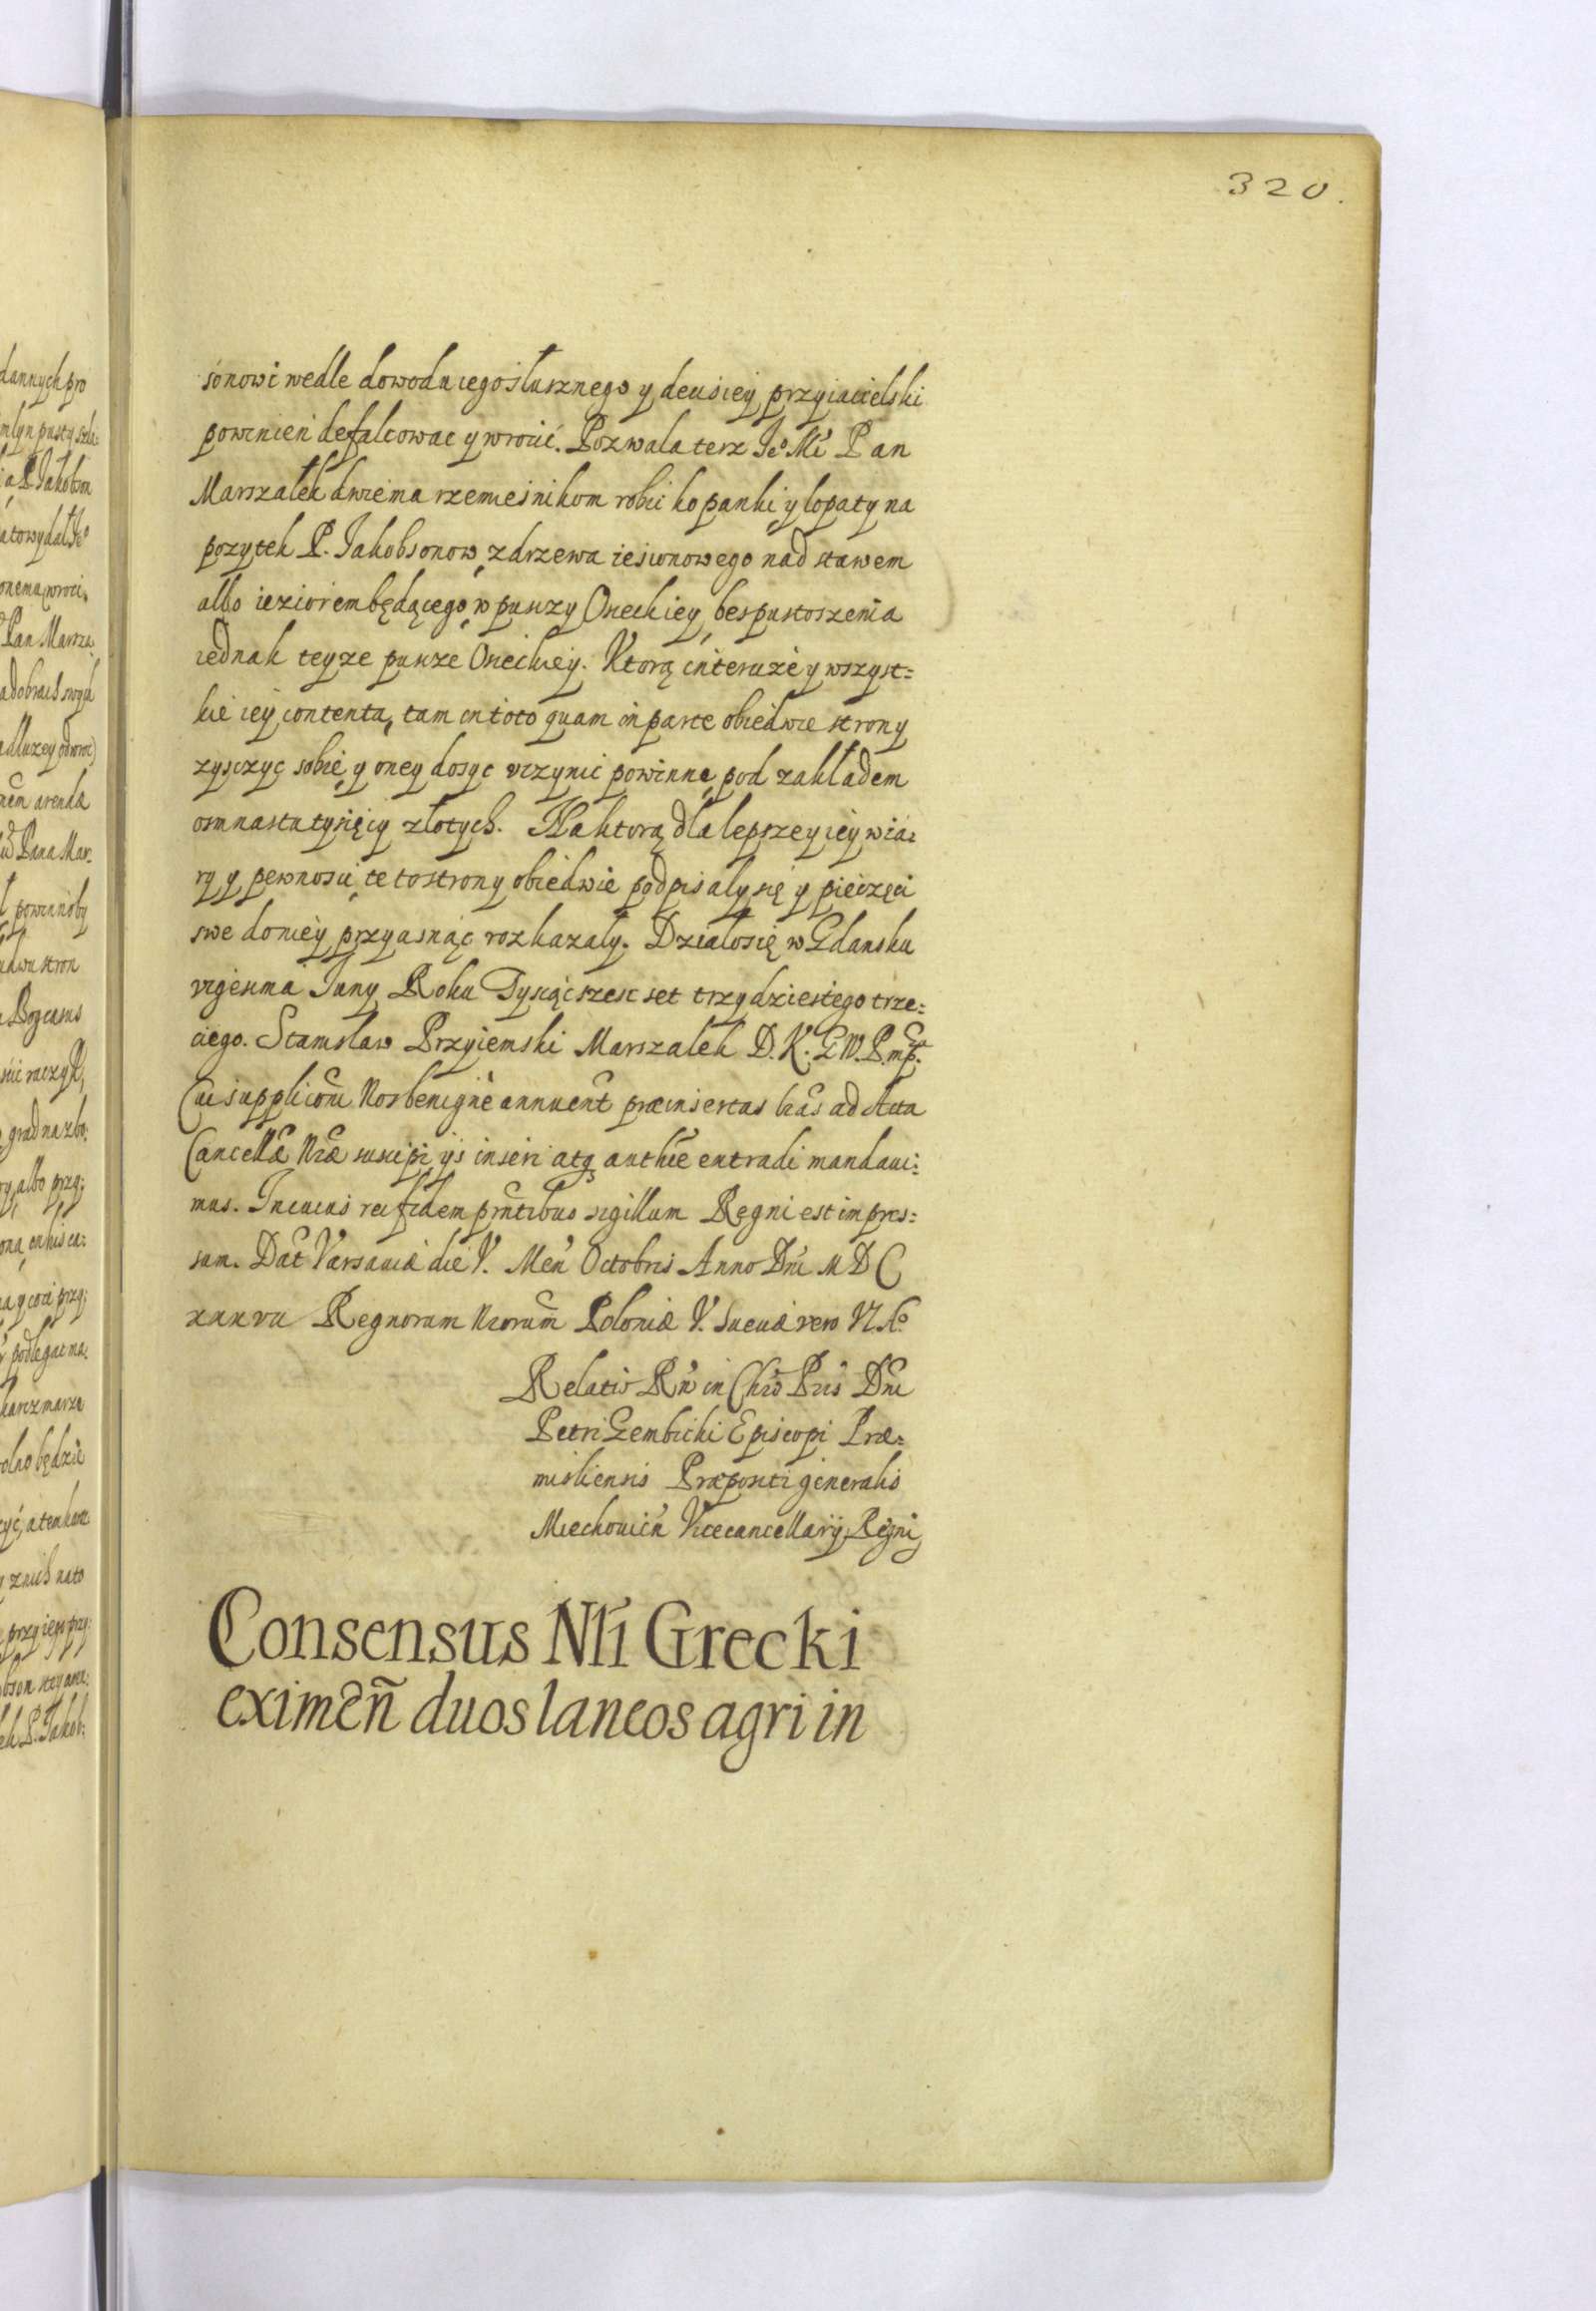 320.
sonowi wedle dowodu iego słusznego y decisiey przyiacielski
powinien defalcowac y wrocić. Pozwala tesz Ie° Mć Pan
Marszałek dwiema rzemieśnikom robic kopanki y lopaty na
pozytek P. Jakobsonow, z drzewa iesionowego nad stawem
albo ieziorem będącego, w puszy Oneckiey, bes pustoszenia
iednak teyze pusze Oneckiey. Ktorą interuzé y wszyst=
kie iey contenta, tam in toto quam in parte obiedwie strony
zysczyc sobie, y oney dosyc vczynic powinne, pod zakładem
osmnastu tysięcy złotych. Na ktorą dla lepszey iey wia=
ry y pewnosci, te to strony obiedwie podpisaly się y pieczęci
swe do niey przyasnąc rozkazały. Działo się w Gdansku
vigesima Juny Roku Tysiącszesc set trzydziestego trze=
ciego. Stanislaw Przyiemski Marszalek D. K. G W. P. mp.
Cui supplicõni Nos benignè annuent præinsertas lras ad Acta
Cancellæ Nræ suscipi ijs inseri atq authce extradi mandaui=
mus. In cuius rei fidem prntibus sigillum Regni est impres=
sum. Dat Varsauiæ die V. Men Octobris Anno Dni M D C
xxxvii Regnorum Nrorum Poloniæ V. Sueciæ vero VI. A°
Relatio Rn in Chro Pris Dni
Petri Gembicki Episcopi Præ=
misliensis Præpositi generalis
Miechouien Vicecancellarij Regni
Consensus Nli Grecki
eximen duos laneos agri in